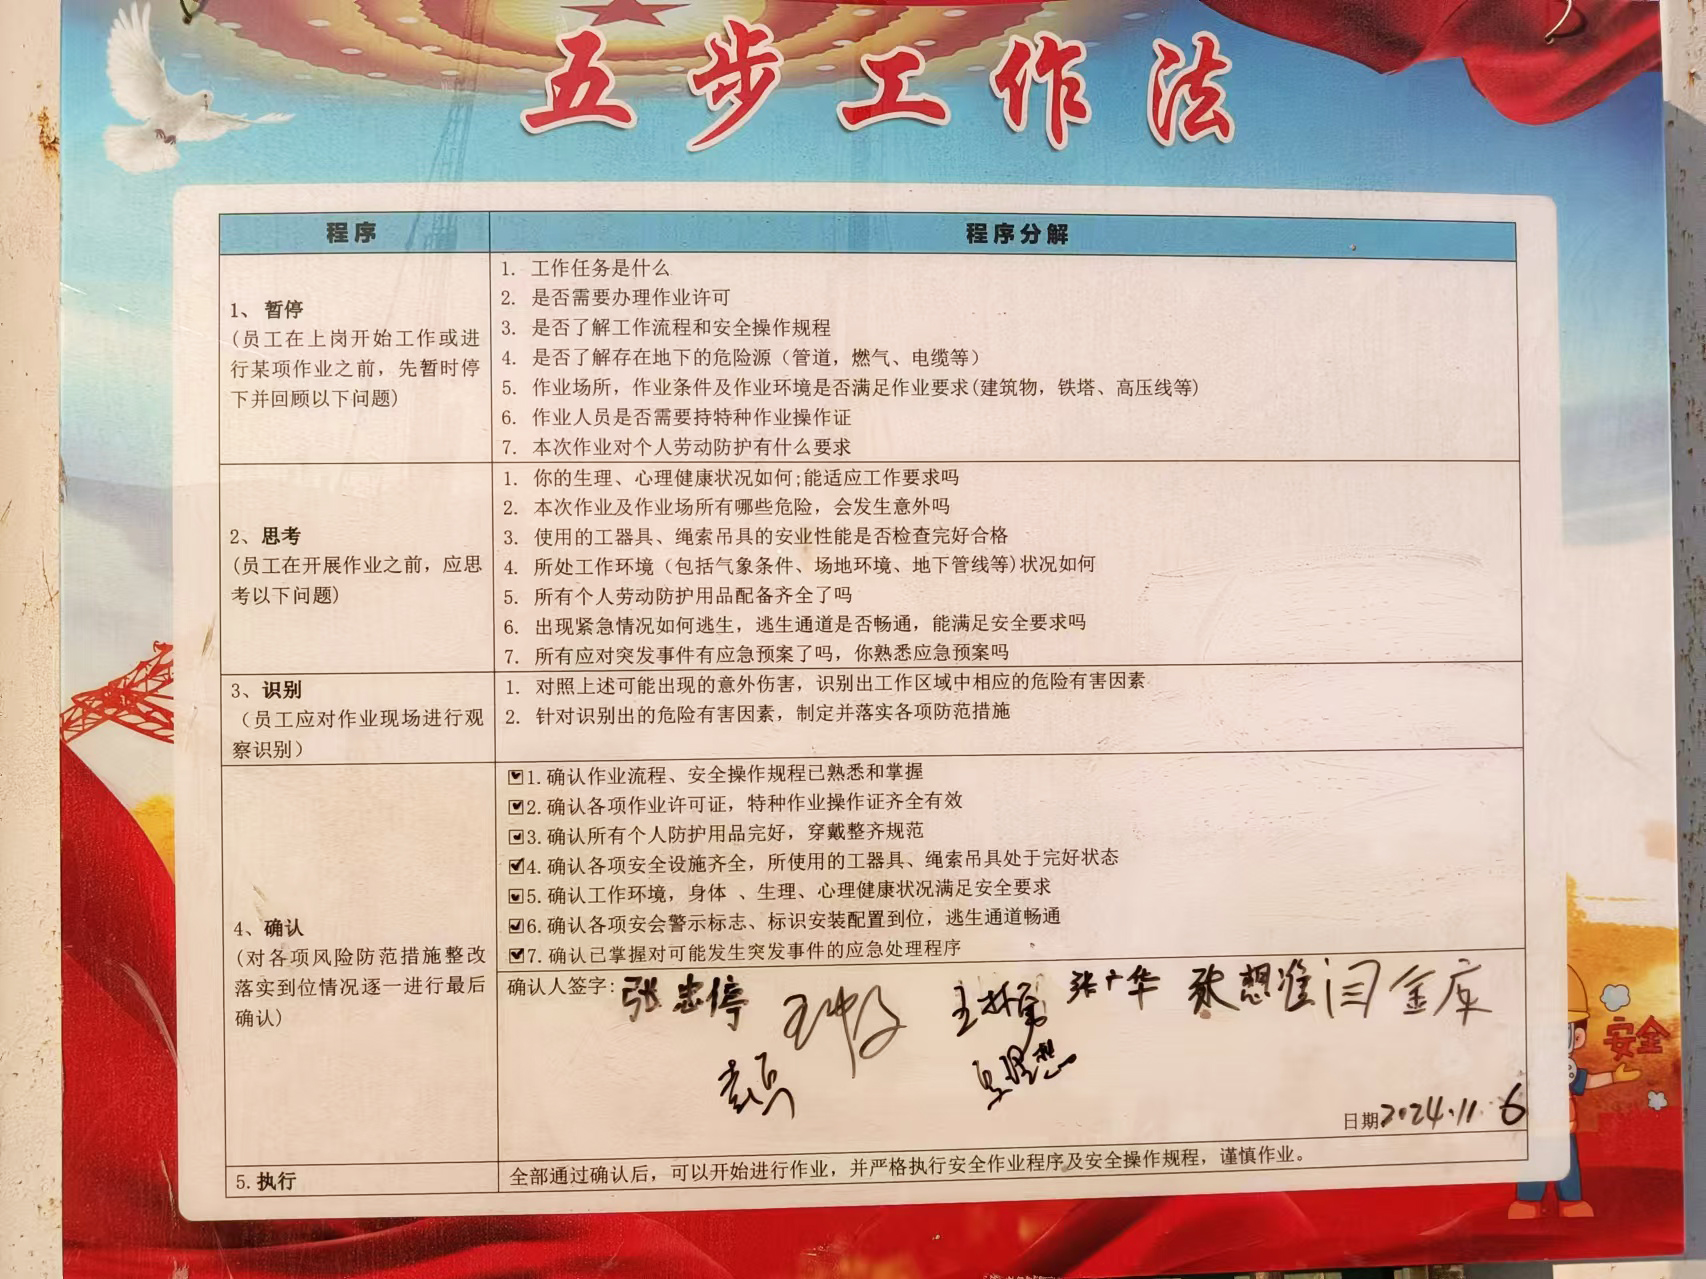 五步工作法
程序
程序分解
1、暂停
(员工在上岗开始工作或进
行某项作业之前，先暂时停
下并回顾以下问题)
1. 工作任务是什么
2. 是否需要办理作业许可
3. 是否了解工作流程和安全操作规程
4. 是否了解存在地下的危险源（管道，燃气、电缆等）
5. 作业场所，作业条件及作业环境是否满足作业要求(建筑物，铁塔、高压线等)
6. 作业人员是否需要持特种作业操作证
7. 本次作业对个人劳动防护有什么要求
2、思考
(员工在开展作业之前，应思
考以下问题)
1. 你的生理、心理健康状况如何;能适应工作要求吗
2. 本次作业及作业场所有哪些危险，会发生意外吗
3. 使用的工器具、绳索吊具的安业性能是否检查完好合格
4. 所处工作环境（包括气象条件、场地环境、地下管线等)状况如何
5. 所有个人劳动防护用品配备齐全了吗
6. 出现紧急情况如何逃生，逃生通道是否畅通，能满足安全要求吗
7. 所有应对突发事件有应急预案了吗，你熟悉应急预案吗
3、识别
（员工应对作业现场进行观
察识别）
1. 对照上述可能出现的意外伤害，识别出工作区域中相应的危险有害因素
2. 针对识别出的危险有害因素，制定并落实各项防范措施
4、确认
(对各项风险防范措施整改
落实到位情况逐一进行最后
确认)
1.确认作业流程、安全操作规程已熟悉和掌握
2.确认各项作业许可证，特种作业操作证齐全有效
3.确认所有个人防护用品完好，穿戴整齐规范
4.确认各项安全设施齐全，所使用的工器具、绳索吊具处于完好状态
5.确认工作环境，身体 、生理、心理健康状况满足安全要求
6.确认各项安会警示标志、标识安装配置到位，逃生通道畅通
7.确认已掌握对可能发生突发事件的应急处理程序
确认人签字: 张忠停 张广华 闫金库
日期2024.11.6
5.执行
全部通过确认后，可以开始进行作业，并严格执行安全作业程序及安全操作规程，谨慎作业。
安全